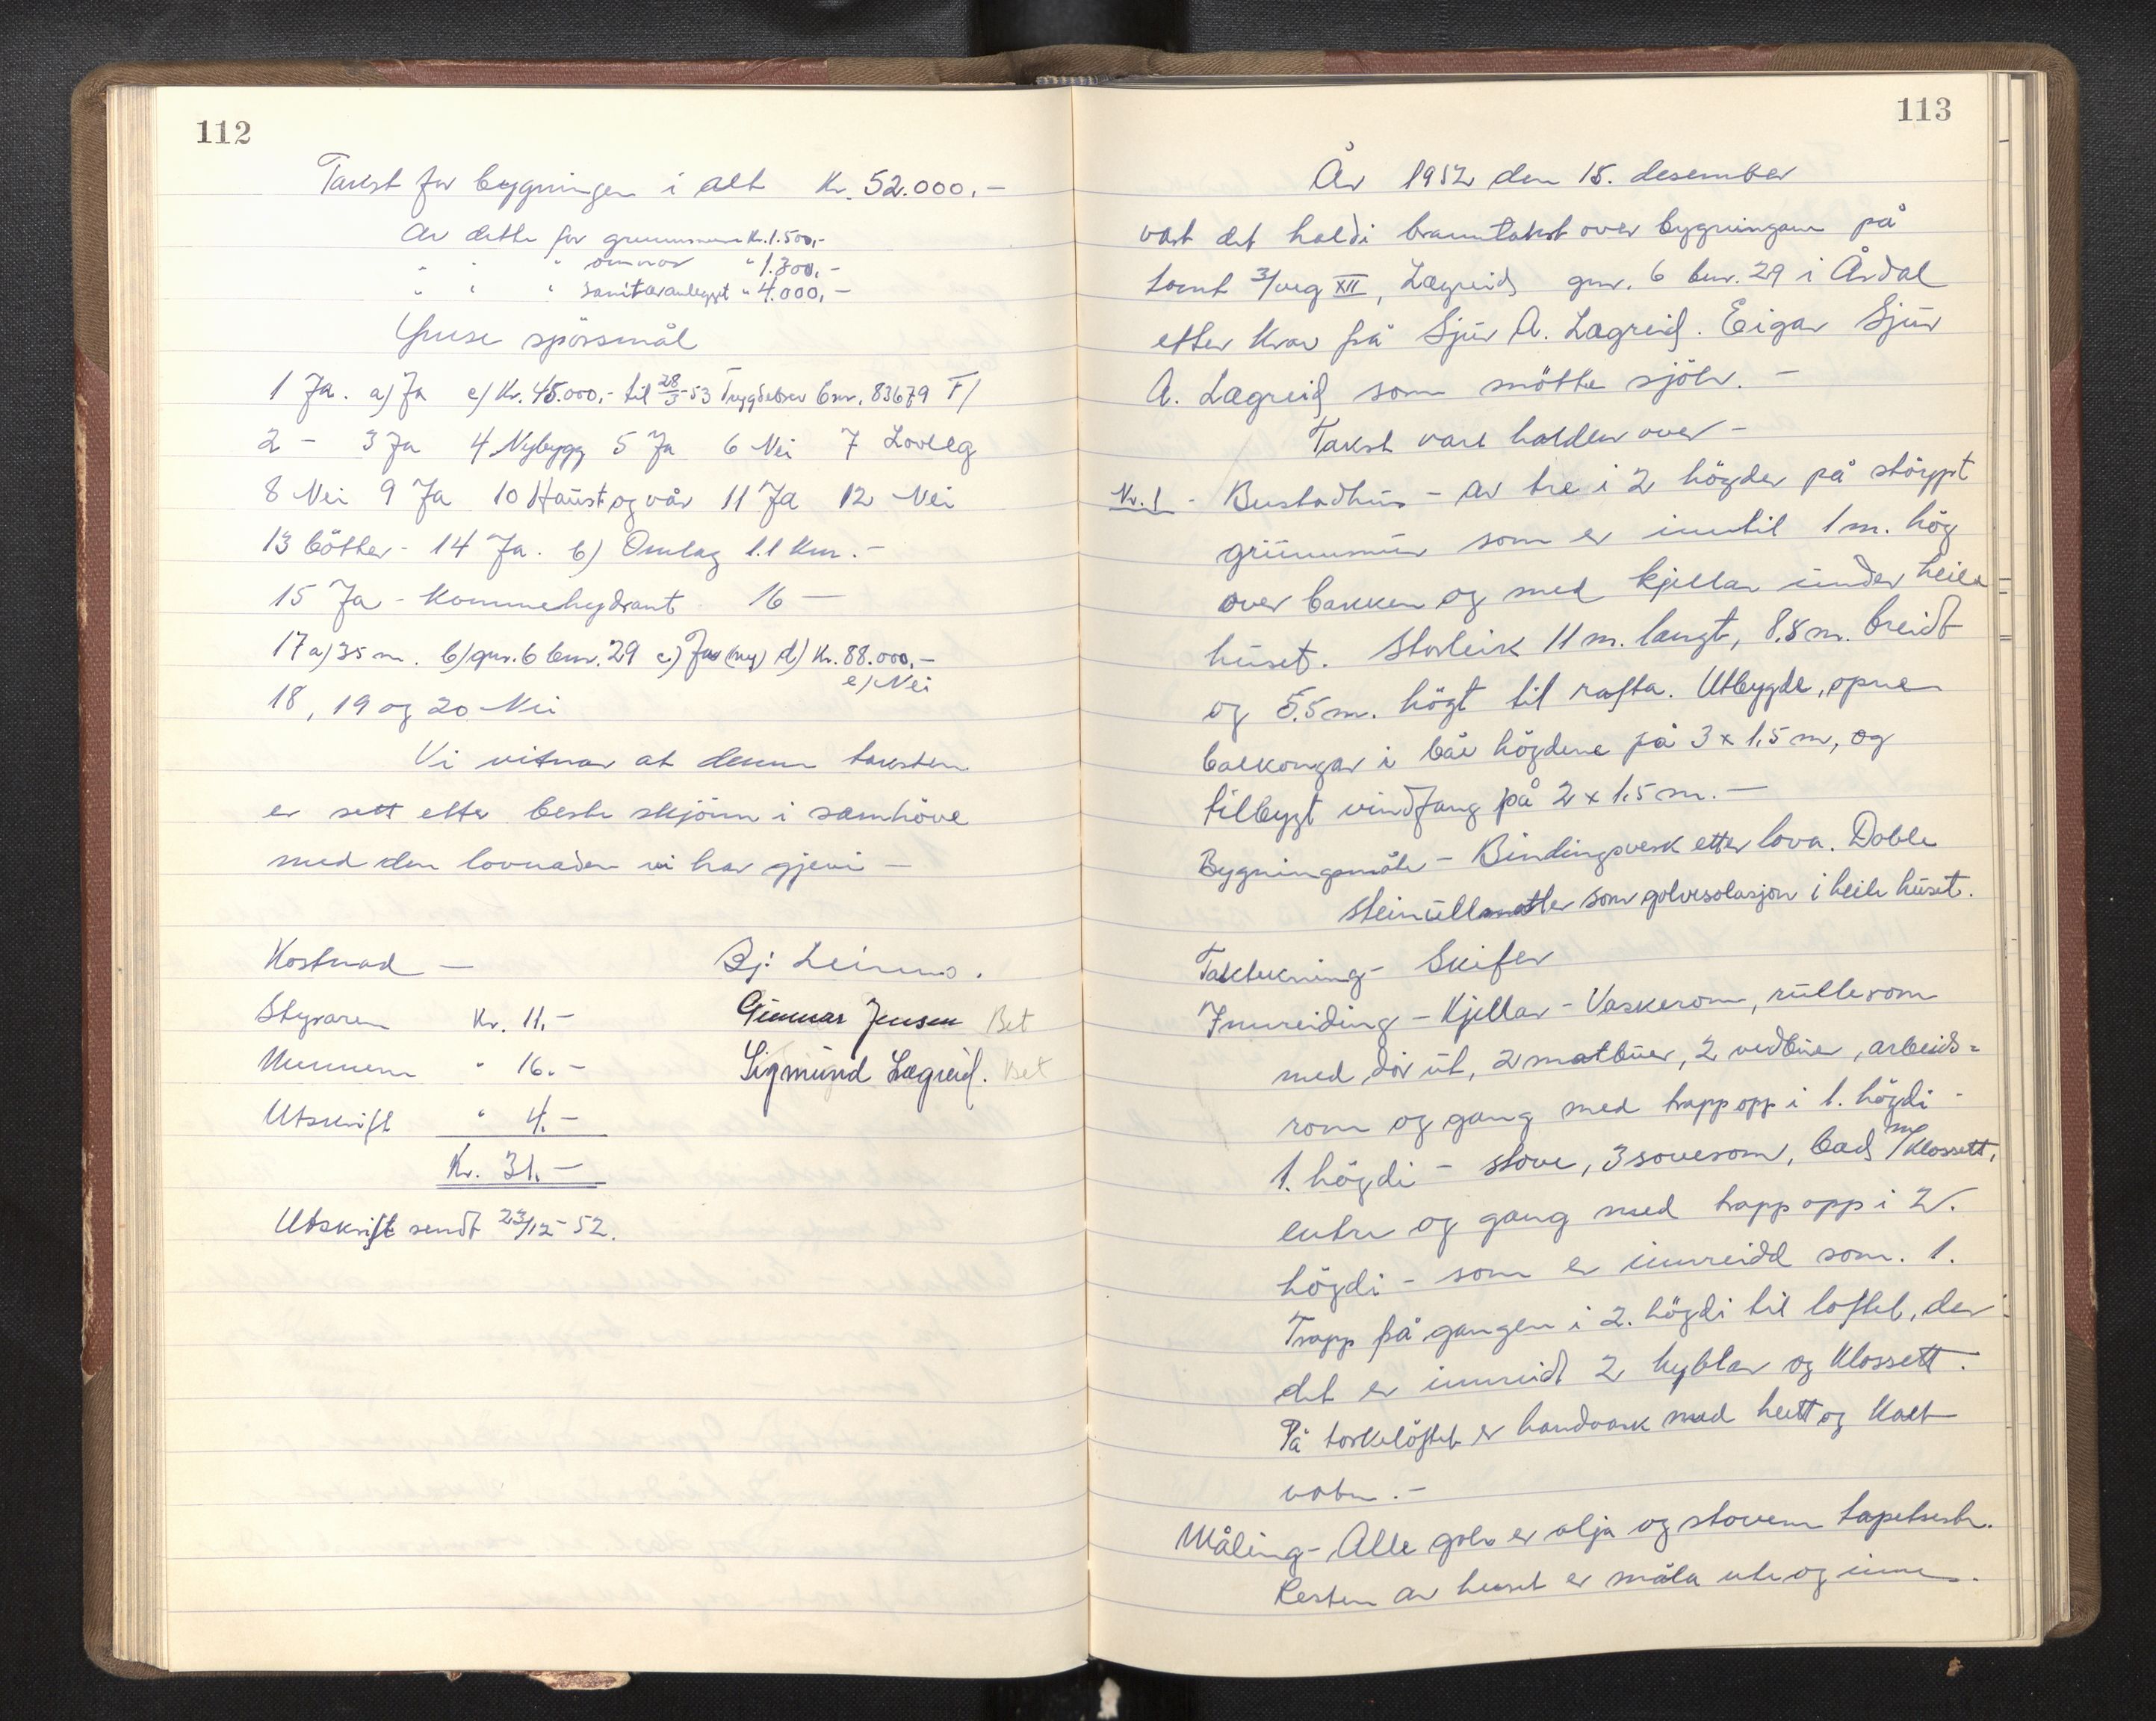 112
Takst for bygningen i alt Kr. 52.000,-
Av dette for grunnmuren Kr. 1.500,-
" " " omnar " 1.300,-
" " " sanitæranlegget " 4.000,-
Ymse spörsmål
1 Ja. a) Ja e) Kr. 45.000,- til 28/3-53 Trygdebrev bnr. 83679 F/
2 - 3 Ja 4 Nybygg 5 Ja 6 Nei 7 Lovleg
8 Nei 9 Ja 10 Haust og vår 11 Ja 12 Nei
13 bötter - 14 Ja. b) Omlag 1.1 Km. -
15 Ja - Kommunehydrant 16 —
17 a) 35 m. b) gnr. 6 bnr. 29 c) Jus (ny) d) Kr. 88.000,-
e) Nei
18, 19 og 20 Nei
Vi vitnar at denne taksten
er sett etter beste skjönn i samhöve
med den lovnaden vi har gjevi —
Kostnad —
Bj: Leirmo.
Styraren Kr. 11.-
Gunnar Jensen Bet
Mennene " 16.-
Sigmund Lægreid. Bet
Utskrift " 4.-
Kr. 31.-
Utskrift sendt 23/12-52.
113
År 1952 den 15. desember
vart det haldi branntakst over bygningane på
tomt 3/veg XII, Lægreid, gnr. 6 bnr. 29 i Årdal
etter krav frå Sjur A. Lægreid. Eigar Sjur
A. Lægreid som mötte sjölv. -
Takst vart halden over -
Nr. 1 - Bustadhus - av tre i 2 högder på stöypt
grunnmur som er inntil 1 m. hög
over bakken og med kjellar under heile
huset. Storleik 11 m. langt, 8,8 m. breidt
og 5.5 m. högt til rafta. Utbygde, opne
balkongar i båe högdene på 3 x 1,5 m, og
tilbygt vindfang på 2 x 1.5 m. -
Bygningsmåte - Bindingsverk etter lova. Doble
steinullmatter som golvisolasjon i heile huset.
Taktekning - Skifer
Innreiding - Kjellar - Vaskerom, rullerom
med dör ut, 2 matbuer, 2 vedbuer, arbeids=
rom og gang med trapp opp i 1. högdi -
1. högdi - stove, 3 soverom, bad m/klossett,
entre og gang med trapp opp i 2.
högdi - som er innreidd som 1.
Trapp frå gangen i 2. högdi til loftet, der
det er innreidt 2 hyblar og klossett.
På torkeloftet er handvask med heitt og kalt
vatn. -
Måling - Alle golv er olja og stovene tapetserte.
Resten av huset er måla ute og inne.